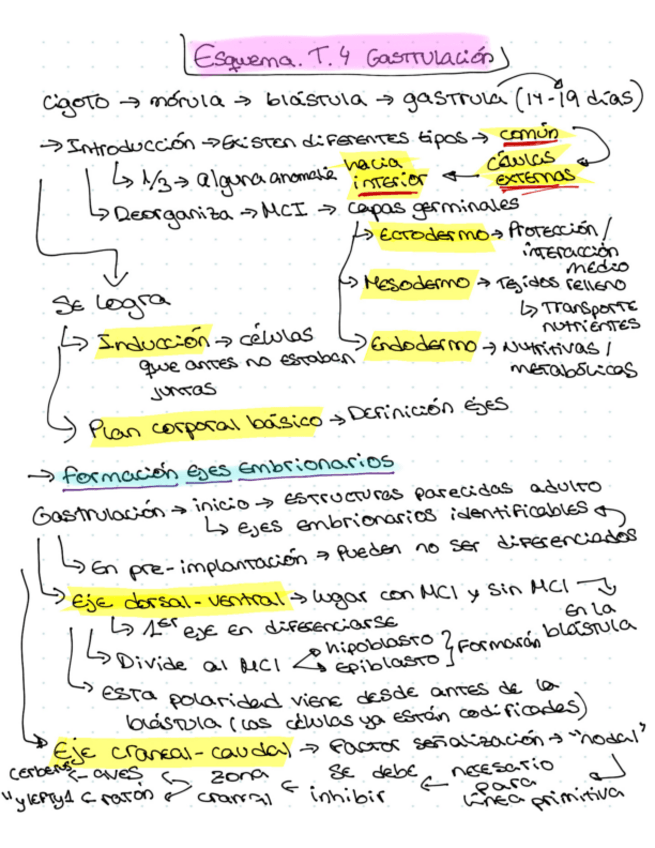 Esquema. T.4 Gastrulación
cigoto → mórula → blástula → gastrula (14-19 días)
→ Introducción → Existen diferentes tipos → común
↳ 1/3 → alguna anomalía hacia interior ← células externas
↳ Deorganiza → MCI → capas germinales
↳ Ectodermo → Protección / interacción medio
↳ Mesodermo → Tejidos relleno
↳ Transporte nutrientes
↳ Endodermo → Nutritivas / metabólicas
Se logra
↳ Inducción → células que antes no estaban juntas
↳ Plan corporal básico → Definición ejes
→ Formación ejes embrionarios
Gastrulación → inicio → estructures parecidas adulto
↳ ejes embrionarios identificables
↳ En pre-implantación → Pueden no ser diferenciados
↳ Eje dorsal-ventral → lugar con MCI y sin MCI
en la blástula
↳ 1er eje en diferenciarse
↳ Divide al MCI hipoblasto epiblasto } Formarán
↳ Esta polaridad viene desde antes de la
blástula (las células ya están codificadas)
Eje craneal-caudal → Factor señalización → "nodal"
← aves zona craneal ← Se debe inhibir ← necesario para línea primitiva
← ratón